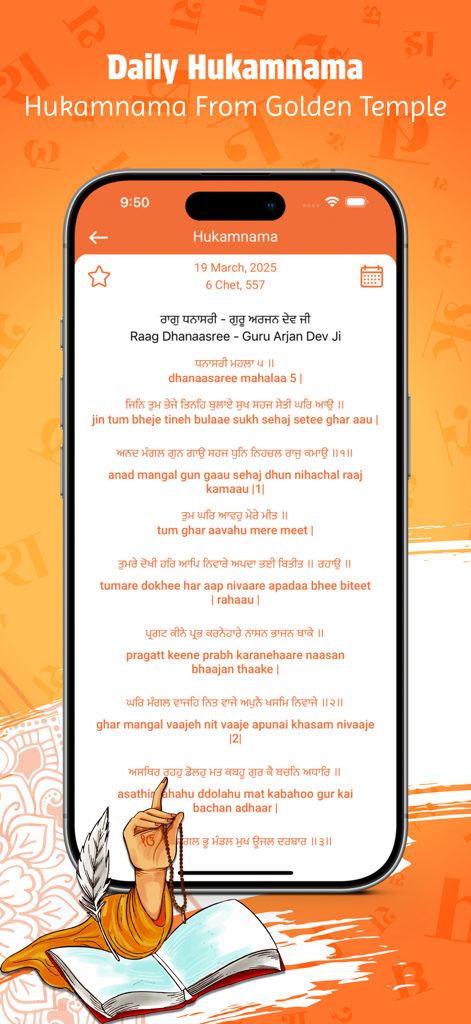 Daily Hukamnama
Hukamnama From Golden Temple
9:50
Hukamnama
19 March, 2025
6 Chet, 557
ਰਾਗੁ ਧਨਾਸਰੀ - ਗੁਰੂ ਅਰਜਨ ਦੇਵ ਜੀ
Raag Dhanaasree - Guru Arjan Dev Ji
ਧਨਾਸਰੀ ਮਹਲਾ ੫ ॥
dhanaasaree mahalaa 5 |
ਜਿਨਿ ਤੁਮ ਭੇਜੇ ਤਿਨਹਿ ਬੁਲਾਏ ਸੁਖ ਸਹਜ ਸੇਤੀ ਘਰਿ ਆਉ ॥
jin tum bheje tineh bulaae sukh sehaj setee ghar aau |
ਅਨਦ ਮੰਗਲ ਗੁਨ ਗਾਉ ਸਹਜ ਧੁਨਿ ਨਿਹਚਲ ਰਾਜੁ ਕਮਾਉ ॥੧॥
anad mangal gun gaau sehaj dhun nihachal raaj
kamaau |1|
ਤੁਮ ਘਰਿ ਆਵਹੁ ਮੇਰੇ ਮੀਤ ॥
tum ghar aavahu mere meet |
ਤੁਮਰੇ ਦੋਖੀ ਹਰਿ ਆਪਿ ਨਿਵਾਰੇ ਅਪਦਾ ਭਈ ਬਿਤੀਤ ॥ ਰਹਾਉ ॥
tumare dokhee har aap nivaare apadaa bhee biteet
| rahaau |
ਪ੍ਰਗਟ ਕੀਨੇ ਪ੍ਰਭ ਕਰਨੇਹਾਰੇ ਨਾਸਨ ਭਾਜਨ ਥਾਕੇ ॥
pragatt keene prabh karanehaare naasan
bhaajan thaake |
ਘਰਿ ਮੰਗਲ ਵਾਜਹਿ ਨਿਤ ਵਾਜੇ ਅਪੁਨੈ ਖਸਮਿ ਨਿਵਾਜੇ ॥੨॥
ghar mangal vaajeh nit vaaje apunai khasam nivaaje
|2|
ਅਸਥਿਰ ਰਹਹੁ ਡੋਲਹੁ ਮਤ ਕਬਹੂ ਗੁਰ ਕੈ ਬਚਨਿ ਅਧਾਰਿ ॥
ddolahu mat kabahoo gur kai
bachan adhaar |
ਭੂ ਮੰਡਲ ਮੁਖ ਊਜਲ ਦਰਬਾਰ ॥੩॥
ੴ